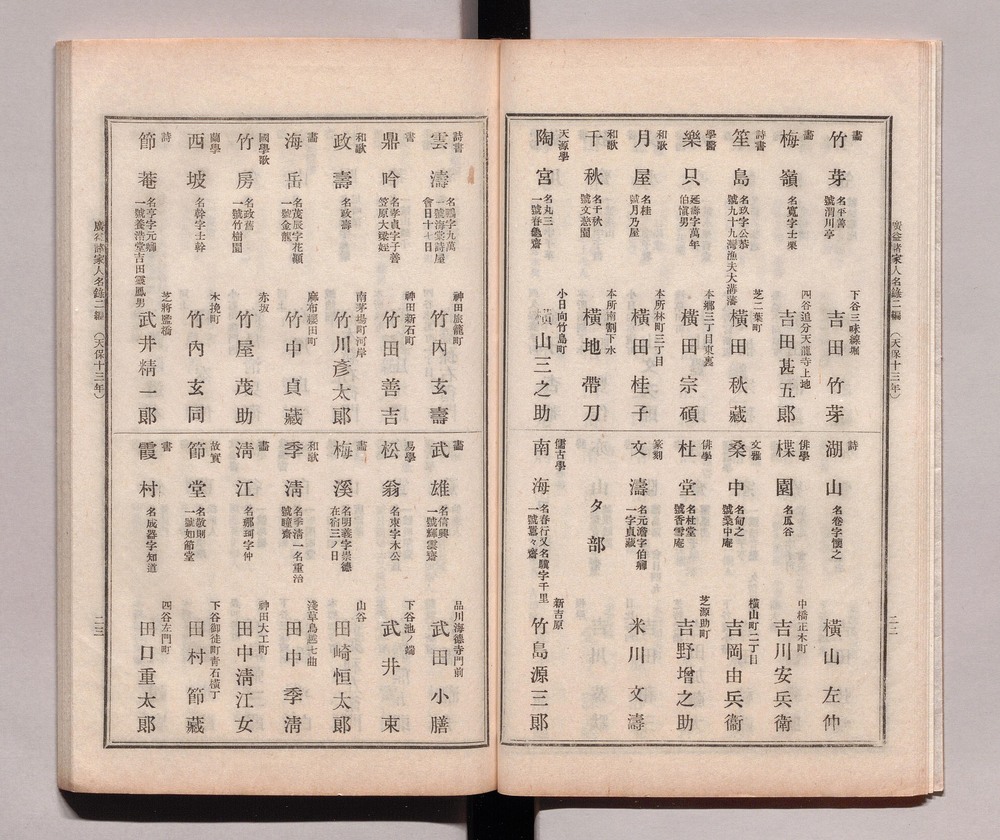 廣益諸家人名錄二編 (天保十三年)
二二
畫
竹芽 名平善 號渭川亭 下谷三味線堀 吉田竹芽
畫
梅嶺 名寬字士栗 四谷追分天龍寺上地 吉田甚五郞
詩書
笙島 名玖字公恭 號九十九灣漁夫大溝藩 芝二葉町 橫田秋藏
學醫
樂只 延壽字萬年 伯愼男 本鄕三丁目東裏 橫田宗碩
和歌
月屋 名桂 號月乃屋 本所林町三丁目 橫田桂子
和歌
千秋 名千秋 號文慈園 本所南割下水 橫地帶刀
天源學
陶宮 名丸三 一號春龜齋 小日向竹島町 橫山三之助
詩
湖山 名卷字懷之 橫山左仲
俳學
楪園 名瓜谷 中橋正木町 吉川安兵衛
文雅
桑中 名甸之 號桑中庵 橫山町二丁目 吉岡由兵衞
俳學
杜堂 名杜堂 號香雪庵 芝源助町 吉野增之助
篆刻
文濤 名元濤字伯卿 一字貞藏 米川文濤
タ部
儒古學
南海 名春行又名驥字千里 一號囂々齋 新吉原 竹島源三郞
詩書
雲濤 名鵬字九萬 一號海棠詩屋 會日十七日 神田旅籠町 竹內玄壽
書
鼎吟 名孝貞字子善 笠原大梁姪 神田新石町 竹田善吉
和歌
政壽 名政壽 南茅場町河岸 竹川彥太郞
畫
海岳 名茂辰字花顚 一號金龍 麻布櫻田町 竹中貞藏
國學歌
竹房 名政舊 一號竹樹園 赤坂 竹屋茂助
蘭學
西坡 名幹字士幹 木挽町 竹內玄同
詩
節菴 名亨字元卿 一號養浩堂吉田霞鳳男 芝將監橋 武井精一郞
畫
武雄 名信興 一號輝雲齋 品川海德寺門前 武田小膳
易學
松翁 名東字木公 下谷池ノ端 武井東
畫
梅溪 名明義字崇德 在宿三ノ日 山谷 田崎恒太郞
和歌
季淸 名季淸一名重治 號疃齋 淺草鳥越七曲 田中季淸
畫
淸江 名琊珂字仲 神田大工町 田中淸江女
故實
節堂 名敬則 一號如節堂 下谷御徒町靑石橫丁 田村節藏
書
霞村 名成器字知道 四谷左門町 田口重太郞
廣益諸家人名錄二編 (天保十三年)
二三